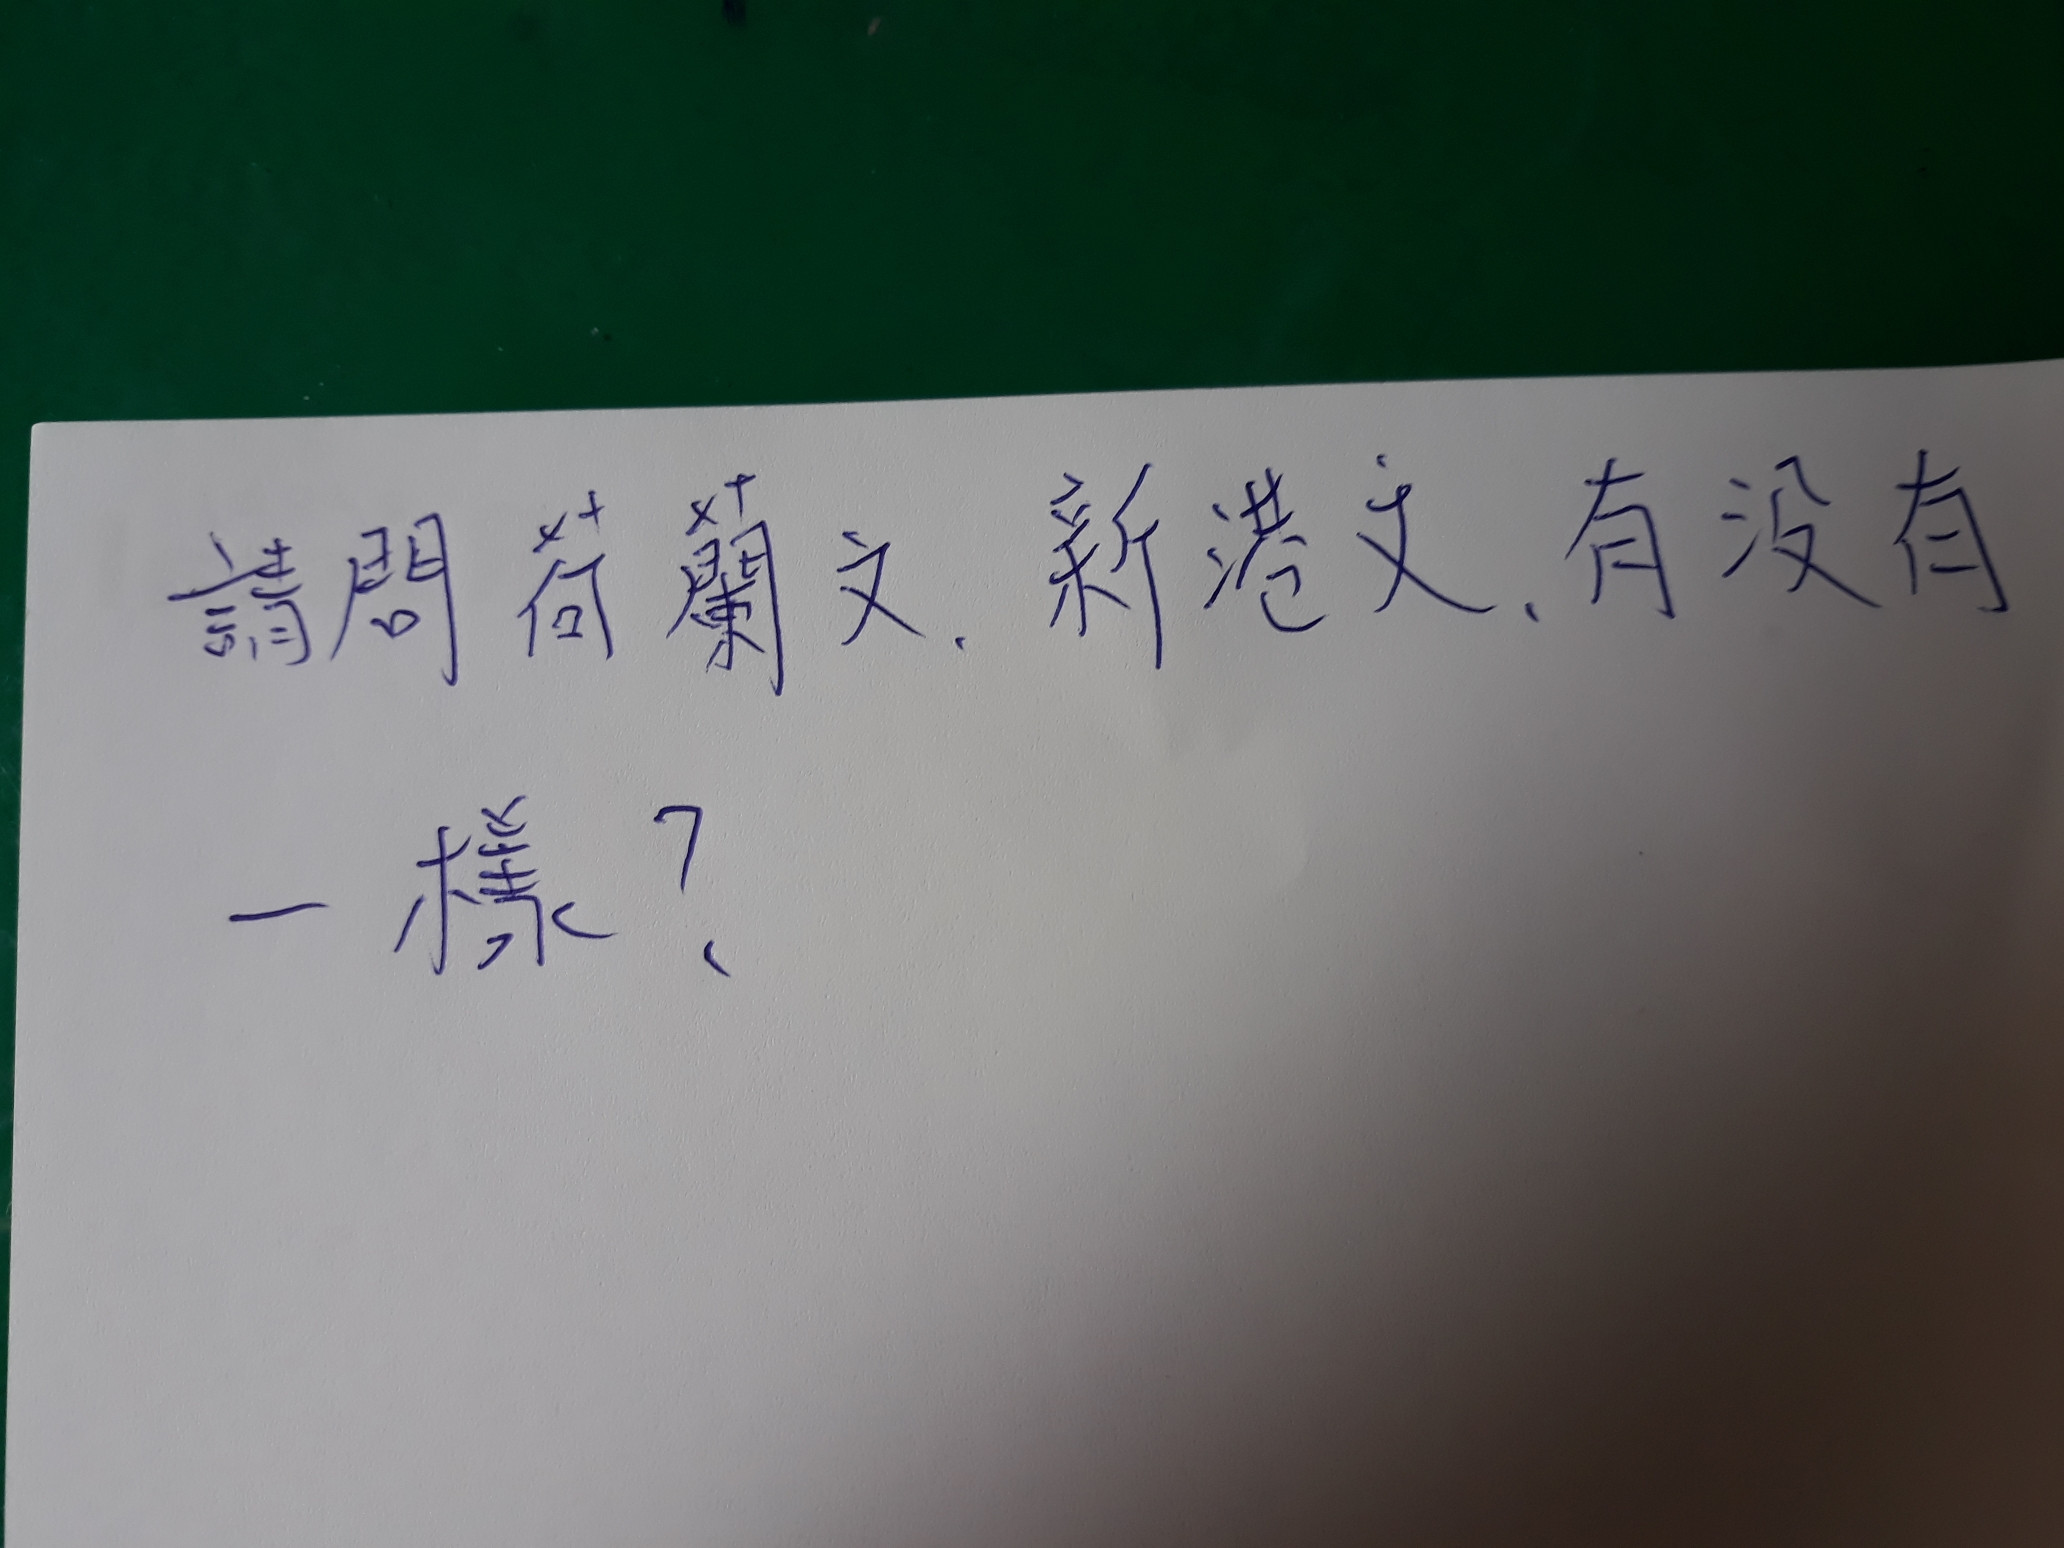 請問荷蘭文.新港文.有没有
一樣?